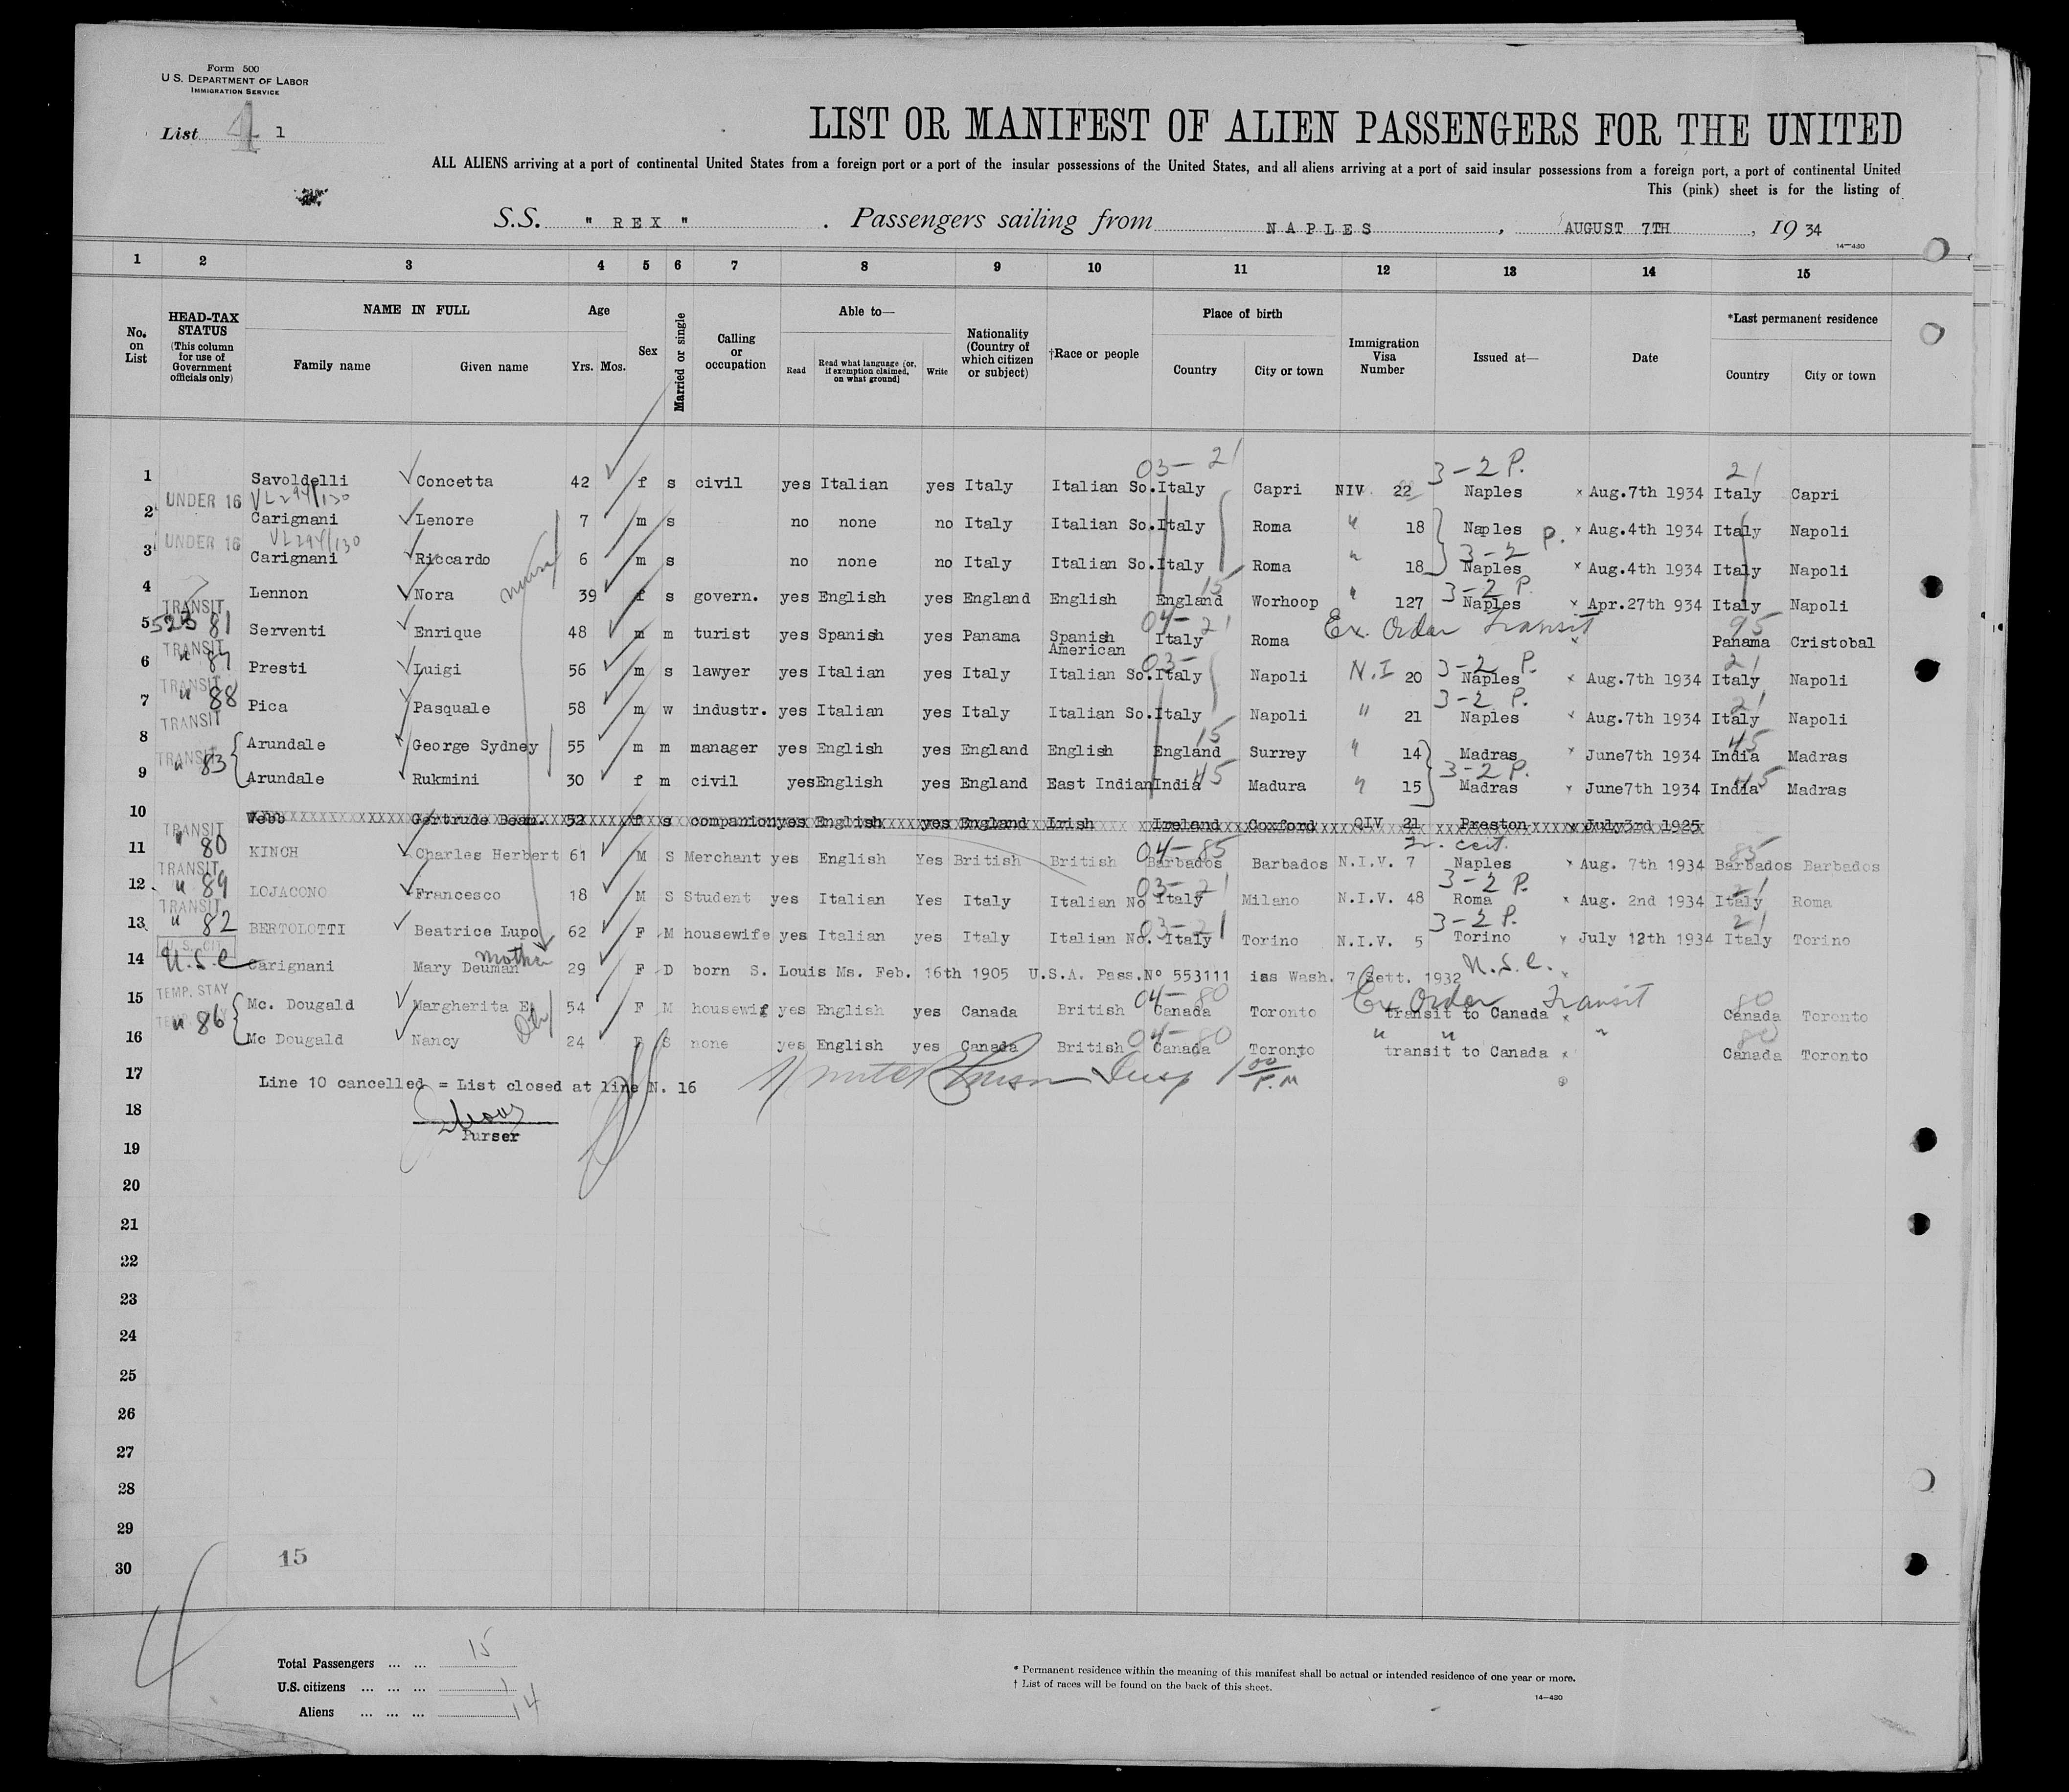 Form 500
U. S. DEPARTMENT OF LABOR
IMMIGRATION SERVICE
List 4 1
LIST OR MANIFEST OF ALIEN PASSENGERS FOR THE UNITED
ALL ALIENS arriving at a port of continental United States from a foreign port or a port of the insular possessions of the United States, and all aliens arriving at a port of said insular possessions from a foreign port, a port of continental United
This (pink) sheet is for the listing of
S.S. " REX " . Passengers sailing from NAPLES , AUGUST 7TH , 19 34
14—430
1 2 3 4 5 6 7 8 9 10 11 12 13 14 15
No. on List
HEAD-TAX STATUS (This column for use of Government officials only)
NAME IN FULL
Family name Given name
Age Yrs. Mos.
Sex
Married or single
Calling or occupation
Able to—
Read Read what language (or, if exemption claimed, on what ground) Write
Nationality (Country of which citizen or subject)
†Race or people
Place of birth
Country City or town
Immigration Visa Number
Issued at—
Date
*Last permanent residence
Country City or town
03— 21 3-2 P. 21
1 Savoldelli Concetta 42 f s civil yes Italian yes Italy Italian So. Italy Capri NIV 22 Naples x Aug.7th 1934 Italy Capri
UNDER 16 VL294/130
2 Carignani Lenore 7 m s no none no Italy Italian So. Italy Roma " 18 Naples P. x Aug.4th 1934 Italy Napoli
UNDER 16 VL294/130
3 Carignani Riccardo 6 m s no none no Italy Italian So. Italy Roma " 18 3-2 Naples x Aug.4th 1934 Italy Napoli
nurse
15 3-2 P.
4 Lennon Nora 39 f s govern. yes English yes England English England Worhoop " 127 Naples x Apr.27th 934 Italy Napoli
TRANSIT
523 81 04— 21 Ex. Order Transit 95
5 Serventi Enrique 48 m m turist yes Spanish yes Panama Spanish American Italy Roma x Panama Cristobal
TRANSIT
" 87 03— N.I 3-2 P. 21
6 Presti Luigi 56 m s lawyer yes Italian yes Italy Italian So. Italy Napoli 20 Naples x Aug.7th 1934 Italy Napoli
TRANSIT
" 88 3-2 P. 21
7 Pica Pasquale 58 m w industr. yes Italian yes Italy Italian So. Italy Napoli " 21 Naples x Aug.7th 1934 Italy Napoli
TRANSIT
15 45
8 Arundale George Sydney 55 m m manager yes English yes England English England Surrey " 14 Madras x June7th 1934 India Madras
TRANSIT
" 83 45 3-2 P. 45
9 Arundale Rukmini 30 f m civil yes English yes England East Indian India Madura " 15 Madras x June7th 1934 India Madras
10 Webb Gertrude Dean. 52 f s companion yes English yes England Irish Ireland Coxford QIV 21 Preston x July3rd 1925
TRANSIT
" 80 04— 85 Tr. cert. 85
11 KINCH Charles Herbert 61 M S Merchant yes English Yes British British Barbados Barbados N.I.V. 7 Naples x Aug. 7th 1934 Barbados Barbados
TRANSIT
" 89 03— 21 3-2 P. 21
12 LOJACONO Francesco 18 M S Student yes Italian Yes Italy Italian No Italy Milano N.I.V. 48 Roma x Aug. 2nd 1934 Italy Roma
TRANSIT
" 82 03— 21 3-2 P. 21
13 BERTOLOTTI Beatrice Lupo 62 F M housewife yes Italian yes Italy Italian No. Italy Torino N.I.V. 5 Torino x July 12th 1934 Italy Torino
U.S. CIT.
U.S.C mother U.S.C.
14 Carignani Mary Deuman 29 F D born S. Louis Ms. Feb. 16th 1905 U.S.A. Pass.Nº 553111 iss Wash. 7 Sett. 1932 x
TEMP. STAY
04— 80 Ex. Order Transit 80
15 Mc. Dougald Margherita E. 54 F M housewif yes English yes Canada British Canada Toronto transit to Canada x Canada Toronto
TEMP. STAY
" 86 04— 80 " " " 80
16 Mc Dougald Nancy 24 F S none yes English yes Canada British Canada Toronto transit to Canada x Canada Toronto
17 Line 10 cancelled = List closed at line N. 16 Insp 1 00 P.M
18
Purser
19
20
21
22
23
24
25
26
27
28
29
30 15
4
Total Passengers ... ... 15
U.S. citizens ... ... ... 1
Aliens ... ... ... 14
* Permanent residence within the meaning of this manifest shall be actual or intended residence of one year or more.
† List of races will be found on the back of this sheet.
14—430